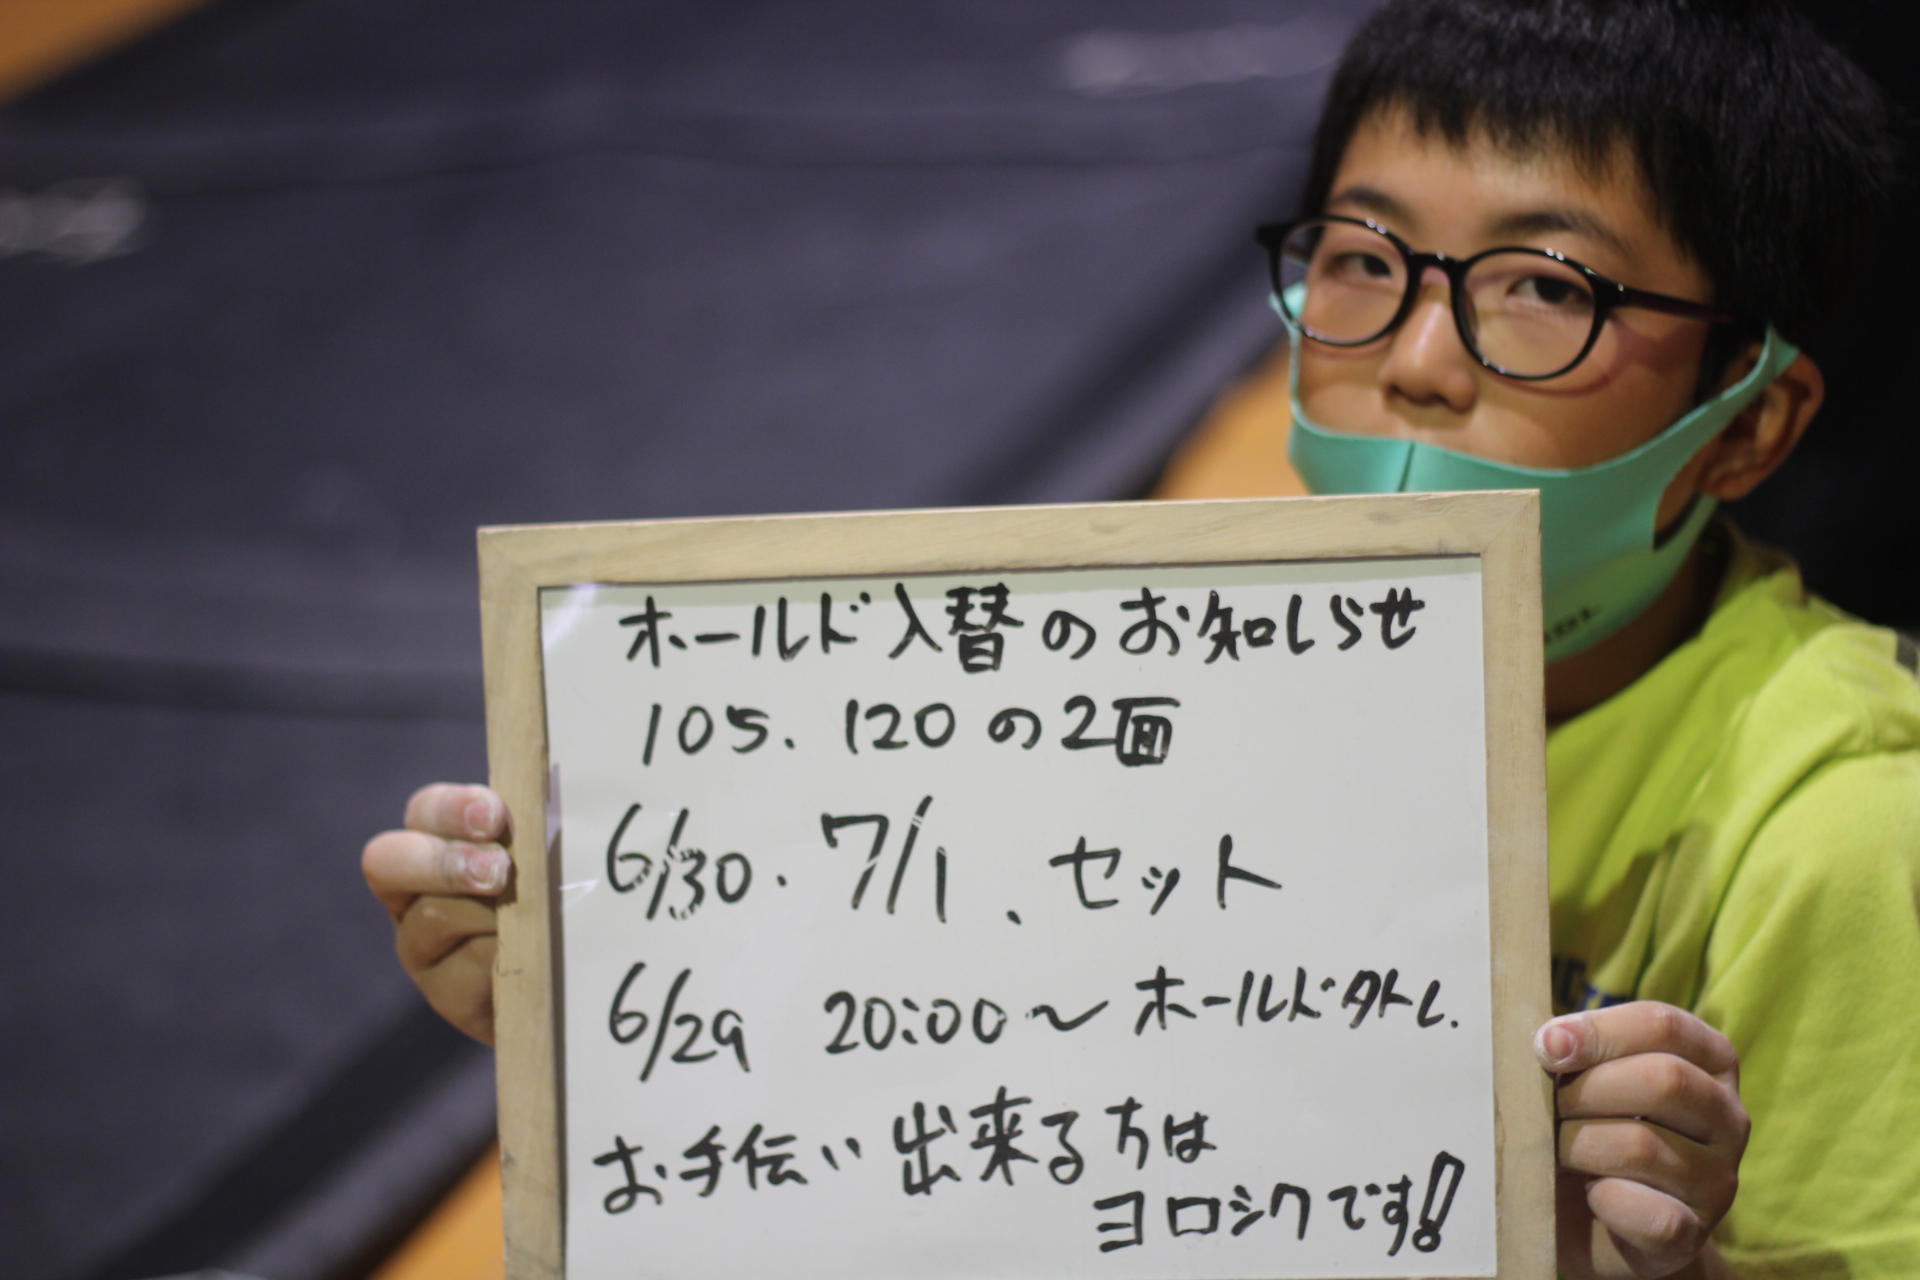 ホールド入替のお知しらせ
105. 120の2面
6/30・7/1、セット
6/29 20:00〜ホールド外し.
お手伝い出来る方は
ヨロシクです!